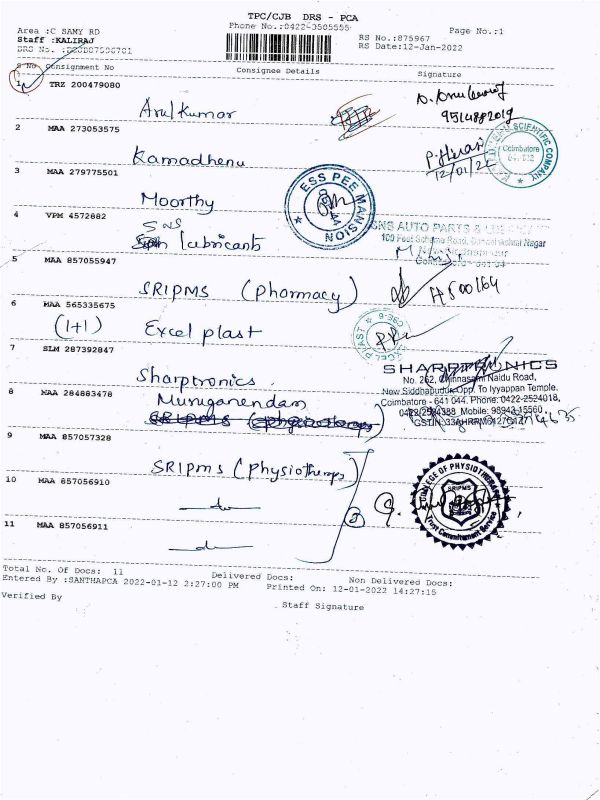 TPC/CJB DRS - PCA
Phone No.:0422-3505555
Page No.:1
Area :C SAMY RD
RS No.:875967
Staff :KALIRAJ
RS Date:12-Jan-2022
DRS No.
S No Consignment No Consignee Details Signature
1 TRZ 200479080
Arulkumar
9514882019
2 MAA 273053575
Kamadhenu
12/01/22
SCIENTIFIC COMPANY
Coimbatore
3 MAA 279775501
Moorthy
ESS PEE MANSION
4 VPM 4572882
SNS lubricants
SNS AUTO PARTS &
100 Feet Scheme Road, Nagar
5 MAA 857055947
SRIPMS (Pharmacy)
6 MAA 565335675
(1+1) Excel plast
7 SLM 287392847
Sharptronics
SHARPTRONICS
No. 262, Chinnasami Naidu Road,
New Siddhapudur, Opp. To Iyyappan Temple,
Coimbatore - 641 044, Phone: 0422-2524018,
Mobile: 98943-15560
8 MAA 284883478
Muruganendam
9 MAA 857057328
SRIPMS (Physiotherapy)
COLLEGE OF PHYSIOTHERAPY
SRIPMS
10 MAA 857056910
3
11 MAA 857056911
Total No. Of Docs: 11 Delivered Docs: Non Delivered Docs:
Entered By :SANTHAPCA 2022-01-12 2:27:00 PM Printed On: 12-01-2022 14:27:15
Verified By Staff Signature